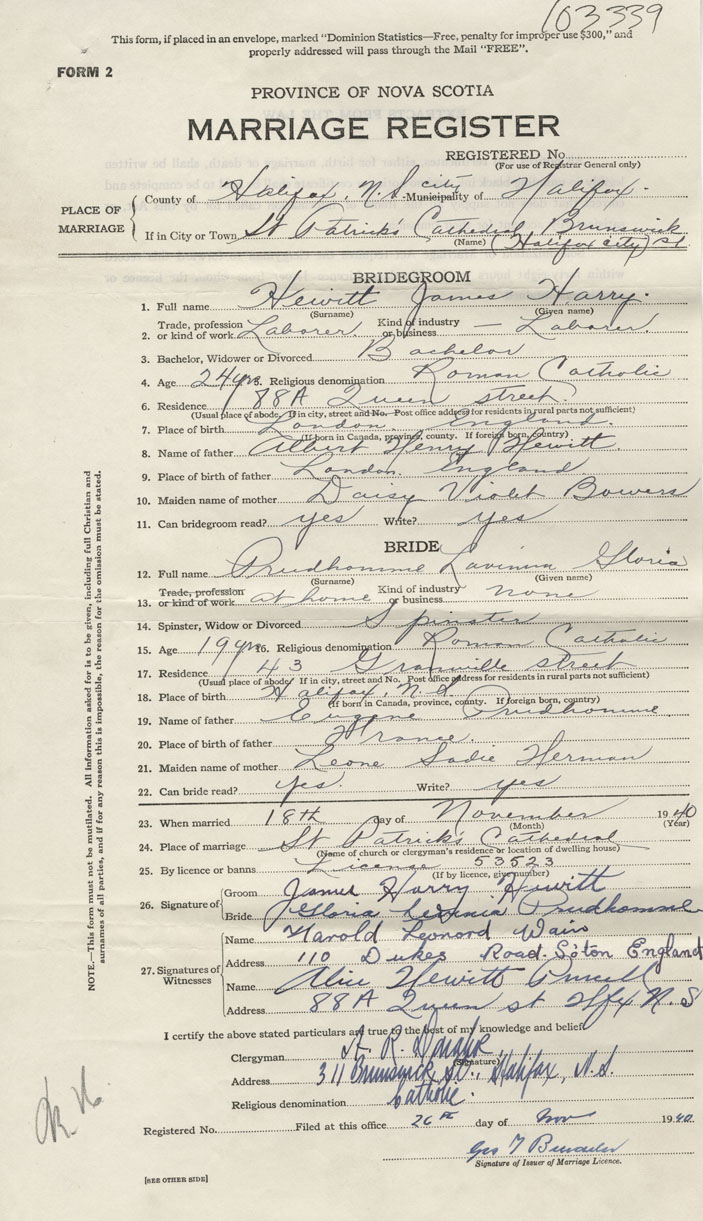 103339
This form, if placed in an envelope, marked "Dominion Statistics—Free, penalty for improper use $300," and
properly addressed will pass through the Mail "FREE".
FORM 2
PROVINCE OF NOVA SCOTIA
MARRIAGE REGISTER
REGISTERED No.
(For use of Registrar General only)
PLACE OF MARRIAGE
County of Halifax, N.S. city Municipality of Halifax.
If in City or Town St Patrick's Cathedral, Brunswick
(Name) (Halifax city) St
BRIDEGROOM
1. Full name Hewitt James Harry.
(Surname) (Given name)
2. Trade, profession or kind of work Laborer Kind of industry or business — Laborer.
3. Bachelor, Widower or Divorced Bachelor
4. Age 24 yrs 5. Religious denomination Roman Catholic
6. Residence 88A Queen street.
(Usual place of abode. If in city, street and No. Post office address for residents in rural parts not sufficient)
7. Place of birth London. England.
(If born in Canada, province, county. If foreign born, country)
8. Name of father Albert Henry Hewitt
9. Place of birth of father London. England
10. Maiden name of mother Daisy Violet Bowers
11. Can bridegroom read? yes Write? yes
BRIDE
12. Full name Prudhomme Lavinia Gloria
(Surname) (Given name)
13. Trade, profession or kind of work at home Kind of industry or business none
14. Spinster, Widow or Divorced Spinster
15. Age 19 yrs 16. Religious denomination Roman Catholic
17. Residence 43 Granville street
(Usual place of abode. If in city, street and No. Post office address for residents in rural parts not sufficient)
18. Place of birth Halifax, N.S.
(If born in Canada, province, county. If foreign born, country)
19. Name of father Eugene Prudhomme
20. Place of birth of father France.
21. Maiden name of mother Leone Sadie Herman
22. Can bride read? yes. Write? yes
23. When married 18th day of November 1940
(Month) (Year)
24. Place of marriage St Patrick's Cathedral
(Name of church or clergyman's residence or location of dwelling house)
25. By licence or banns License 53523
(If by licence, give number)
26. Signature of Groom James Harry Hewitt
Bride Gloria Lavinia Prudhomme
27. Signatures of Witnesses
Name Harold Leonord
Address 110 Dukes Road. So'ton England
Name Alice Hewitt
Address 88A Queen st Hfx N.S
I certify the above stated particulars are true to the best of my knowledge and belief.
Clergyman
(Signature)
Address 311 Brunswick St., Halifax, N.S.
Religious denomination Catholic.
Registered No. Filed at this office 26th day of Nov 1940
Geo T
Signature of Issuer of Marriage Licence.
[SEE OTHER SIDE]
NOTE.—This form must not be mutilated. All information asked for is to be given, including full Christian and
surnames of all parties, and if for any reason this is impossible, the reason for the omission must be stated.